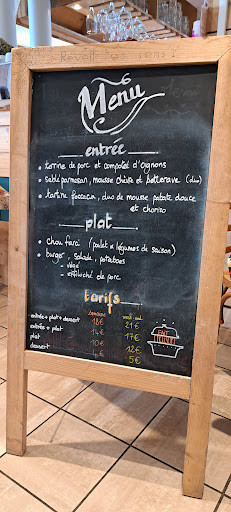 Menu
entrée
• terrine de porc et compotée d'oignons
• sablé parmesan, mousse chèvre et betterave
• tartine foccacia, duo de mousse patate douce
et chorizo
plat
• chou farci (poulet & légumes de saison)
• burger, salade, potatoes
- végé
- effiloché de porc
tarifs
semaine
entrée + plat + dessert 18€ 21€
entrée + plat 14€ 17€
plat 10€ 12€
dessert 4€ 5€